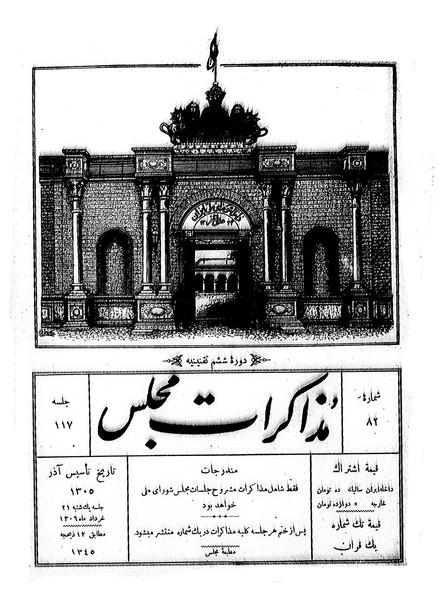 دورهٔ ششم تقنینیه
شماره
۸۲
مذاکرات مجلس
جلسه
۱۱۷
قیمة اشتراك
داخله ایران سالیانه ده تومان
خارجه » دوازده تومان
قیمة تك شماره
یك قران
مندرجات
فقط شامل مذاکرات مشروح جلسات مجلس شورای ملی
خواهد بود
پس از ختم هر جلسه کلیه مذاکرات در یك شماره منتشر میشود.
مطبعهٔ مجلس
تاریخ تأسیس آذر
۱۳۰۵
جلسه یك شنبه ۲۱
خرداد ماه ۱۳۰۶
مطابق ۱۲ ذیحجه
۱۳۴۵